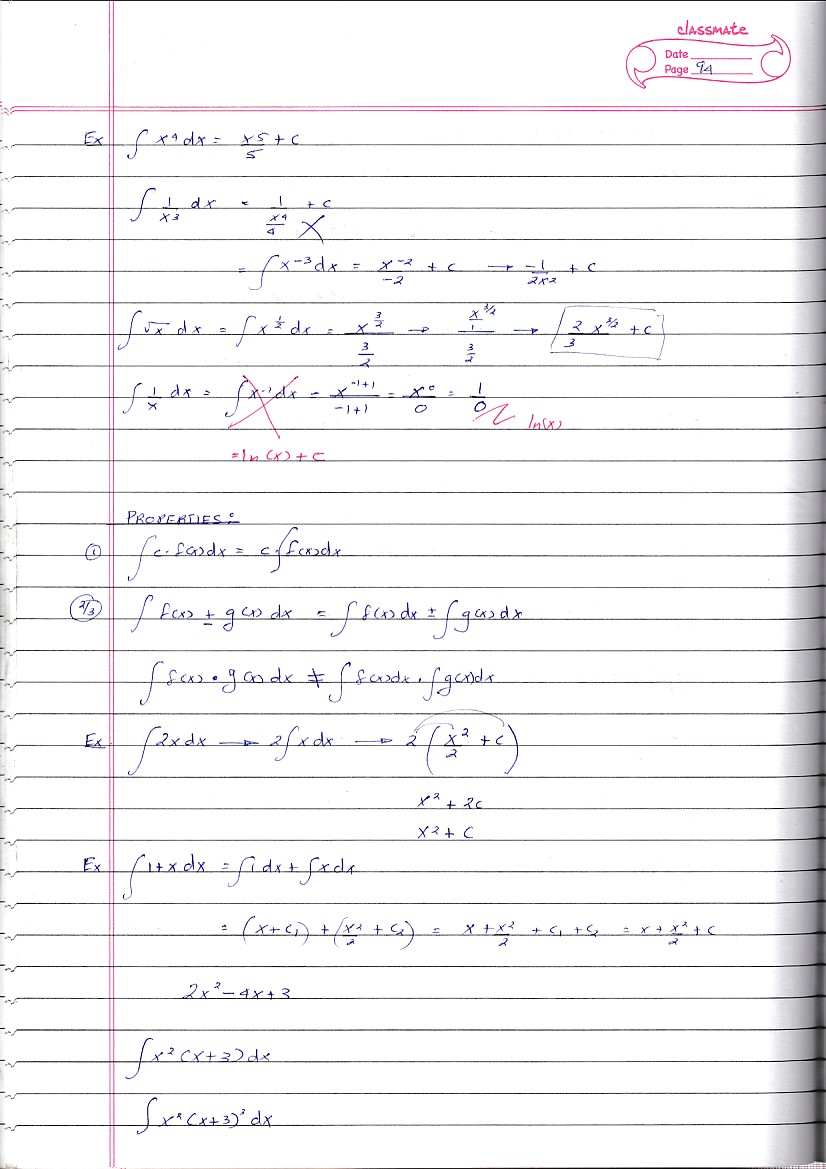 classmate
Date
Page 94
Ex ∫ x⁴ dx = x⁵/5 + c
∫ 1/x³ dx = 1/(x⁴/4) + c
= ∫ x⁻³ dx = x⁻²/-2 + c → -1/2x² + c
∫ √x dx = ∫ x^(1/2) dx = x^(3/2)/(3/2) → (x^(3/2)/1)/(3/2) → 2/3 x^(3/2) + c
∫ 1/x dx = ∫ x⁻¹ dx = x^(-1+1)/(-1+1) = x⁰/0 = 1/0 ln(x)
= ln(x) + c
PROPERTIES:
① ∫ c · f(x) dx = c ∫ f(x) dx
2/3 ∫ f(x) ± g(x) dx = ∫ f(x) dx ± ∫ g(x) dx
∫ f(x) • g(x) dx ≠ ∫ f(x) dx · ∫ g(x) dx
Ex ∫ 2x dx → 2 ∫ x dx → 2 (x²/2 + c)
x² + 2c
x² + c
Ex ∫ 1 + x dx = ∫ 1 dx + ∫ x dx
= (x + c₁) + (x²/2 + c₂) = x + x²/2 + c₁ + c₂ = x + x²/2 + c
2x² - 4x + 3
∫ x² (x+3) dx
∫ x² (x+3)² dx